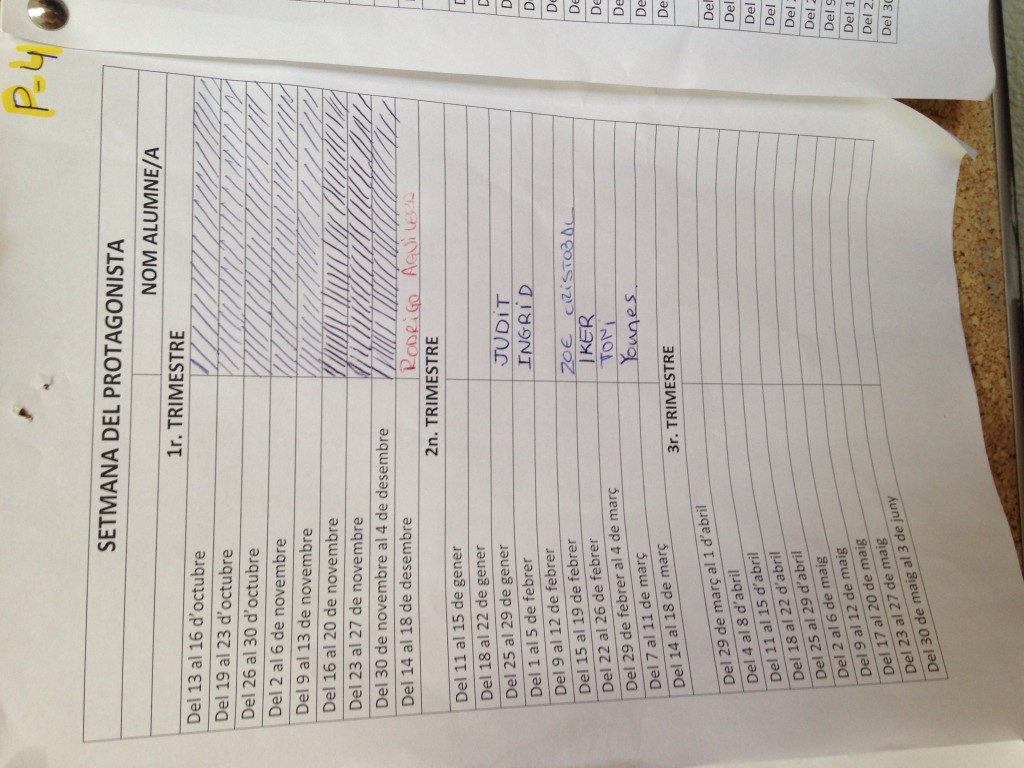 P-4
SETMANA DEL PROTAGONISTA
NOM ALUMNE/A
1r. TRIMESTRE
Del 13 al 16 d'octubre
Del 19 al 23 d'octubre
Del 26 al 30 d'octubre
Del 2 al 6 de novembre
Del 9 al 13 de novembre
Del 16 al 20 de novembre
Del 23 al 27 de novembre
Del 30 de novembre al 4 de desembre
Del 14 al 18 de desembre RODRIGO AGUILERA
2n. TRIMESTRE
Del 11 al 15 de gener
Del 18 al 22 de gener
Del 25 al 29 de gener JUDIT
Del 1 al 5 de febrer INGRID
Del 9 al 12 de febrer
Del 15 al 19 de febrer ZOE CRISTOBAL
Del 22 al 26 de febrer IKER
Del 29 de febrer al 4 de març TONI
Del 7 al 11 de març Younes
Del 14 al 18 de març
3r. TRIMESTRE
Del 29 de març al 1 d'abril
Del 4 al 8 d'abril
Del 11 al 15 d'abril
Del 18 al 22 d'abril
Del 25 al 29 d'abril
Del 2 al 6 de maig
Del 9 al 12 de maig
Del 17 al 20 de maig
Del 23 al 27 de maig
Del 30 de maig al 3 de juny